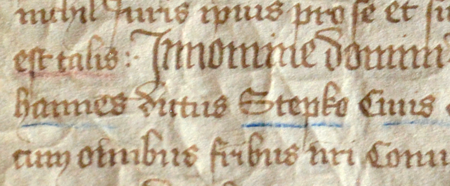 nichil Juris ipius pro se et su
est talis: In nomine domini
hannes dictus Stepko Ciuis
cum omnibus fribus nri Conu